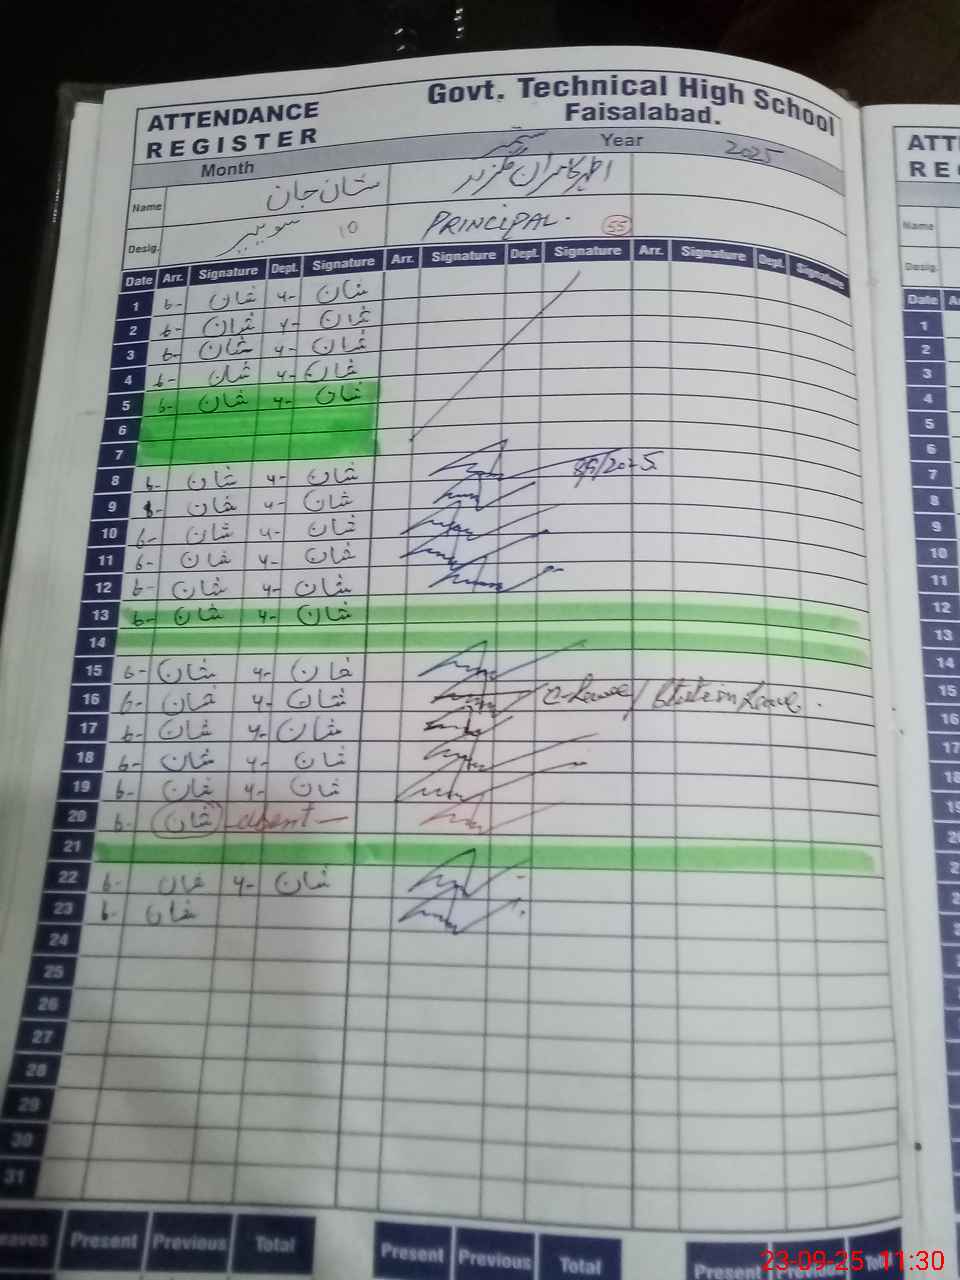 ATTENDANCE REGISTER
Govt. Technical High School
Faisalabad.
Month ستمبر Year 2025
Name شان جان اطہر کامران
Desig. سویپر 10 PRINCIPAL. 55
Date Arr. Signature Dept. Signature Arr. Signature Dept. Signature Arr. Signature Dept. Signature
1 6- شان 4- شان
2 6- شان 4- شان
3 6- شان 4- شان
4 6- شان 4- شان
5 6- شان 4- شان
6
7
8 6- شان 4- شان
9 شان 4- شان
10 6- شان 4- شان
11 6- شان 4- شان
12 6- شان 4- شان
13 6- شان 4- شان
14
15 6- شان 4- شان
16 6- شان 4- شان C-Leave / Station Leave.
17 6- شان 4- شان
18 6- شان 4- شان
19 6- شان 4- شان
20 6- شان absent
21
22 6- شان 4- شان
23 6- شان
24
25
26
27
28
29
30
31
eaves Present Previous Total Present Previous Total Present
ATT
RE
Name
Desig.
Date A
1
2
3
4
5
6
7
8
9
10
11
12
13
14
15
16
17
18
19
23-09-25 11:30